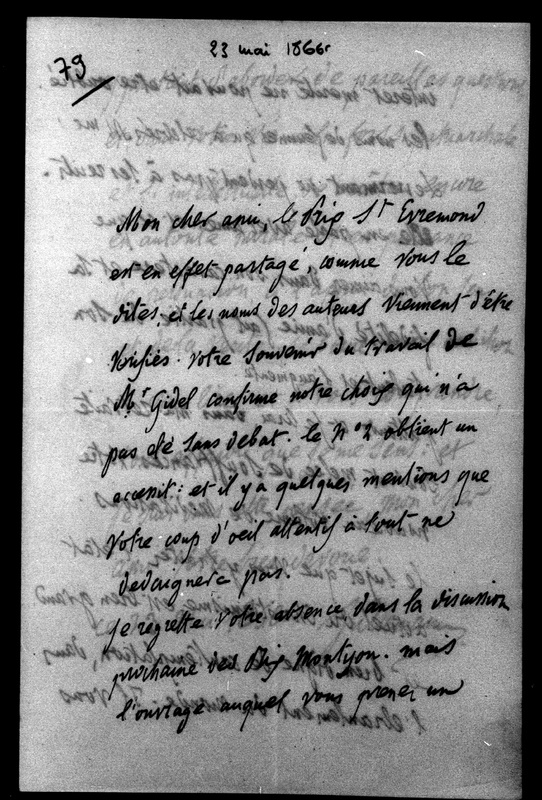 23 mai 1866
79
Mon cher ami, le Prix St Evremond
est en effet partagé, comme vous le
dites, et les noms des auteurs viennent d'être
vérifiés. votre souvenir du travail de
Mr Gidel confirme notre choix qui n'a
pas été sans debat. le no 2 obtient un
accessit : et il y a quelques mentions que
votre coup d'oeil attentif à tout ne
dedaignera pas.
je regrette votre absence dans la discussion
prochaine des Prix Montyon. mais
l'ouvrage auquel vous prenez un